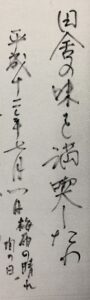 田舎の味を満喫したわ
平成十二年七月一日梅雨の晴れ
間の日